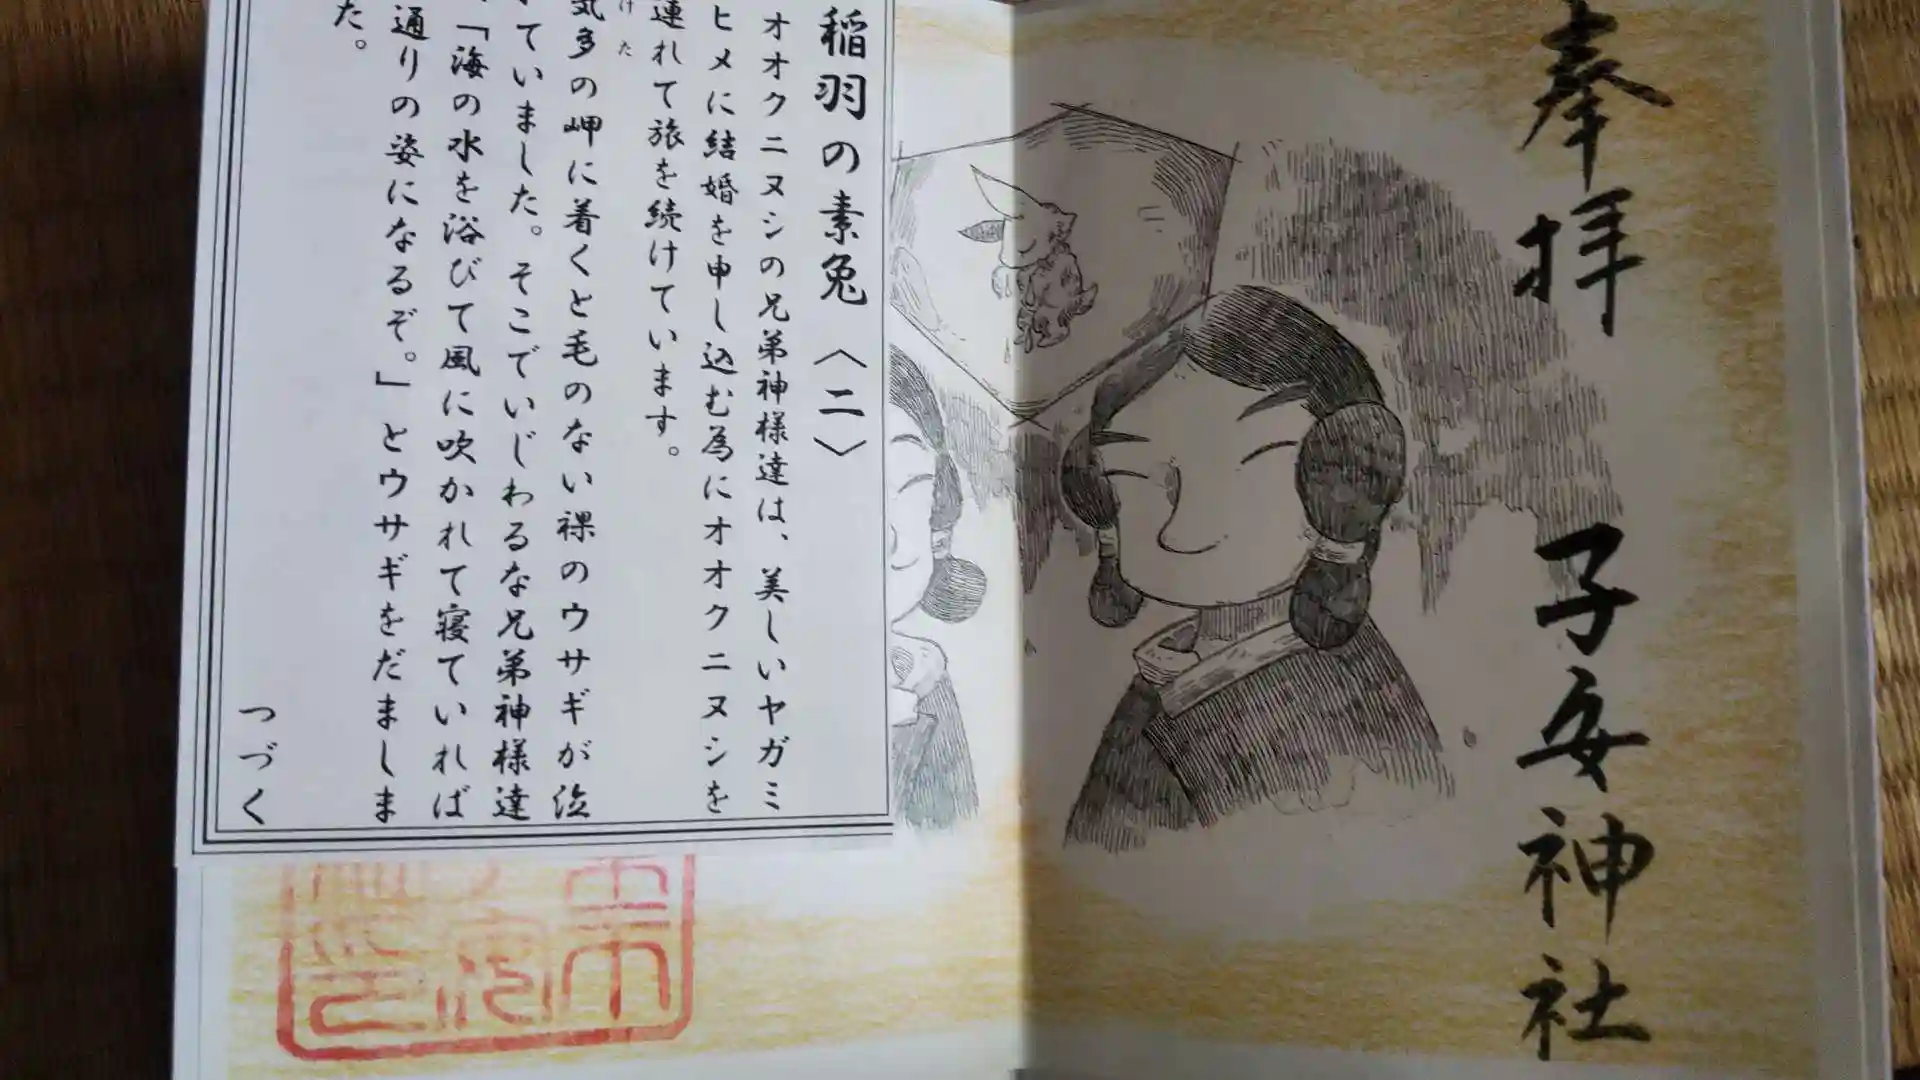 奉拝
子安神社
稲羽の素兎〈二〉
オオクニヌシの兄弟神様達は、美しいヤガミ
ヒメに結婚を申し込む為にオオクニヌシを
連れて旅を続けています。
けた
気多の岬に着くと毛のない裸のウサギが泣
いていました。そこでいじわるな兄弟神様達
「海の水を浴びて風に吹かれて寝ていれば
通りの姿になるぞ。」とウサギをだましま
た。
つづく